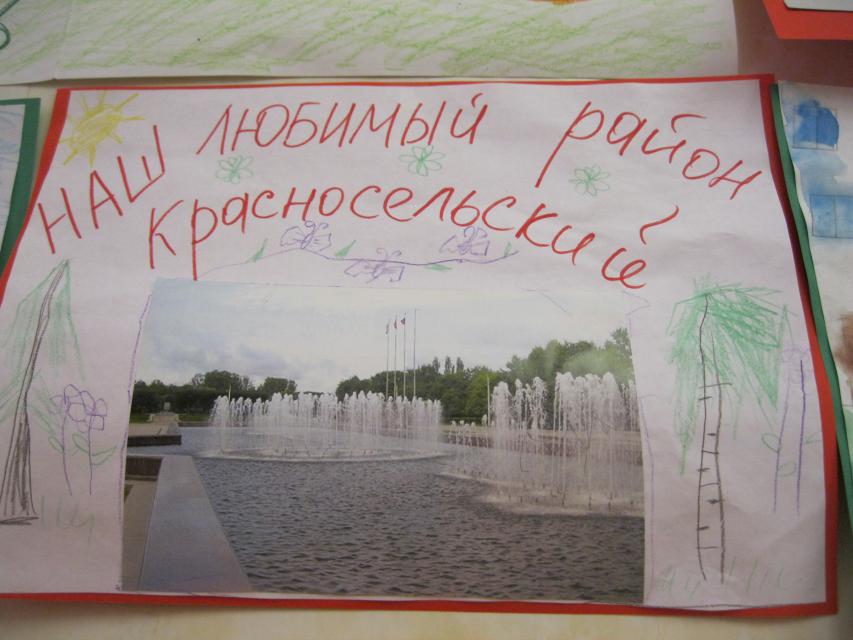 НАШ ЛЮБИМЫЙ район
Красносельский